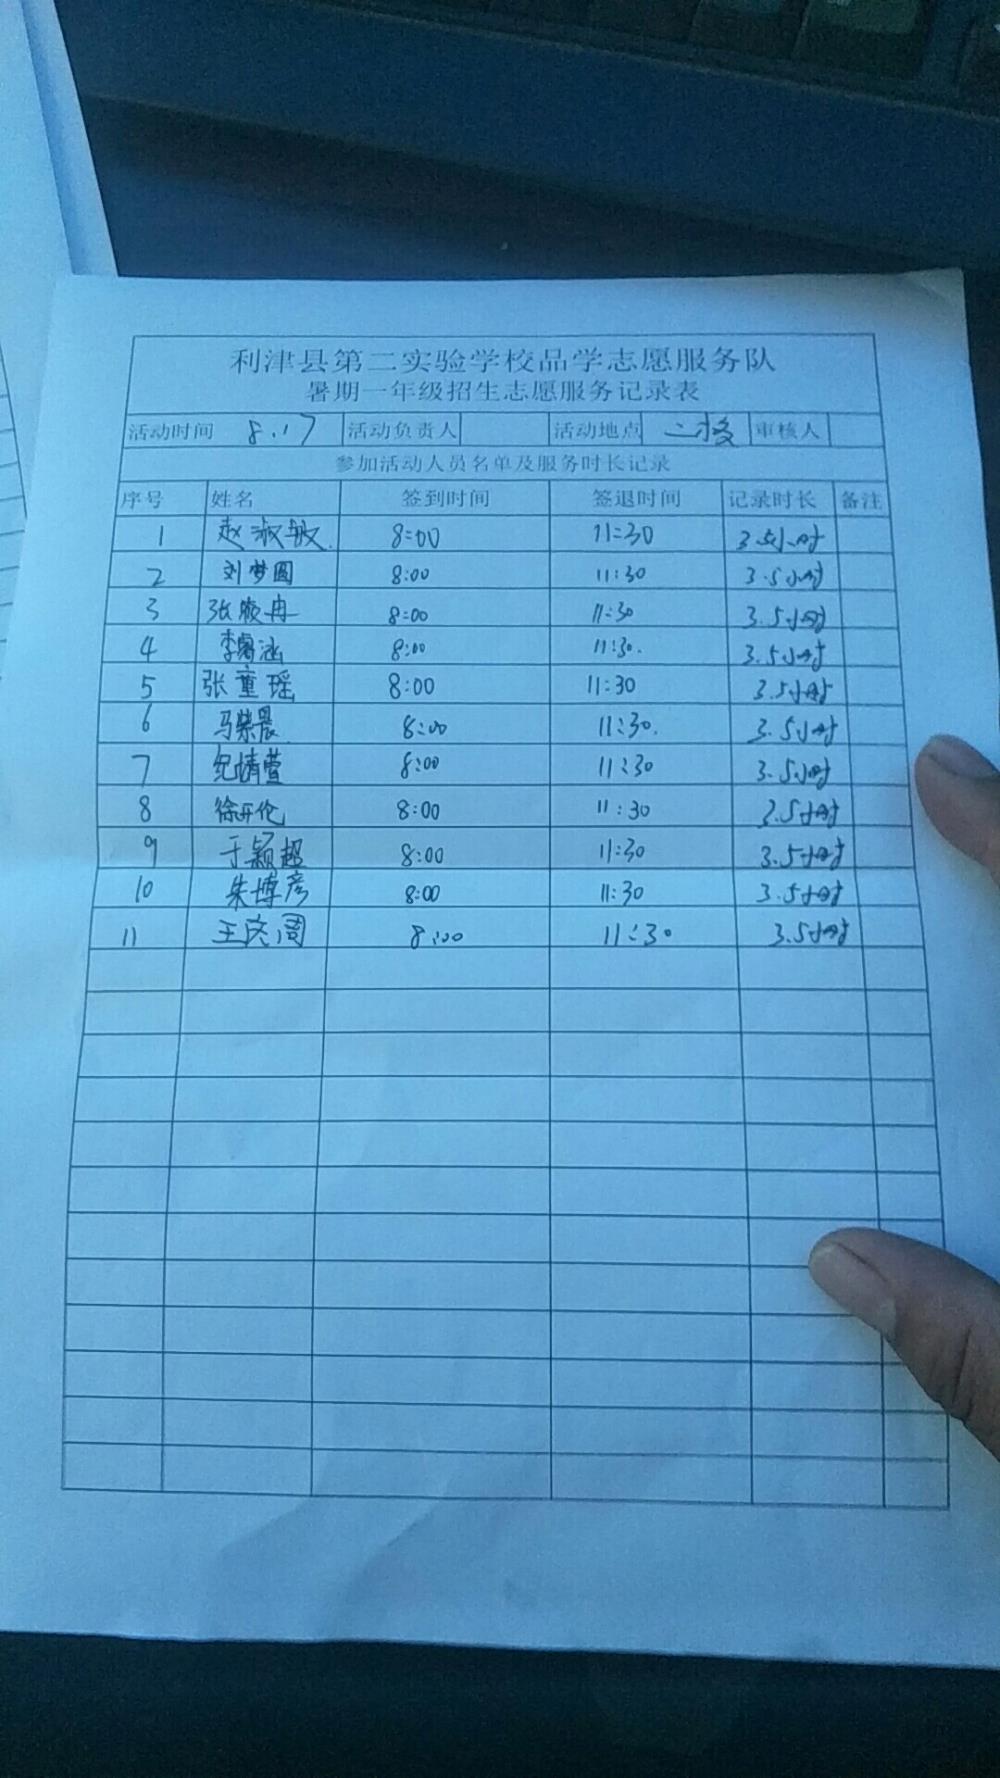 利津县第二实验学校品学志愿服务队
暑期一年级招生志愿服务记录表
活动时间 8.17 活动负责人 活动地点 二校 审核人
参加活动人员名单及服务时长记录
序号 姓名 签到时间 签退时间 记录时长 备注
1 赵淑敏 8:00 11:30 3.5小时
2 刘梦圆 8:00 11:30 3.5小时
3 张晙冉 8:00 11:30 3.5小时
4 李睿涵 8:00 11:30. 3.5小时
5 张童瑶 8:00 11:30 3.5小时
6 马紫晨 8:00 11:30. 3.5小时
7 纪婧萱 8:00 11:30 3.5小时
8 徐开伦 8:00 11:30 3.5小时
9 于颖超 8:00 11:30 3.5小时
10 朱博彦 8:00 11:30 3.5小时
11 王 周 8:00 11:30 3.5小时